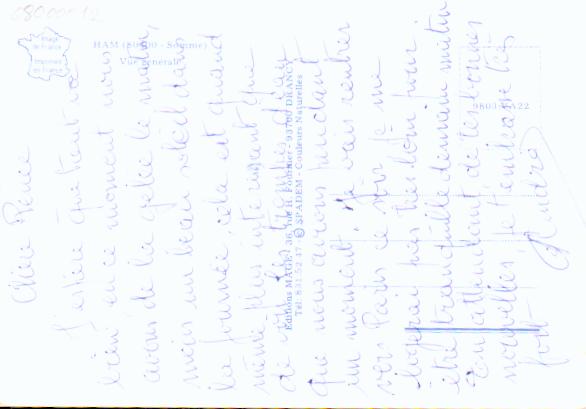 08000012
Image
de France
Imprimée
en France
HAM (80400 - Somme)
Vue générale
9803 22
Editions MAGE - 36, rue R. Pommier - 93700 DRANCY
Tél. 831.52.47 - © SPADEM - Couleurs Naturelles
Chère Renée
J'espère que tout va
bien en ce moment nous
avons de la gelée le matin,
mais un beau soleil dans
la journée, cela est quand
même plus intéressant que
de voir les trombes d'eau
que nous avons pendant
un moment. Je vais rentrer
vers Paris ce soir je me
logerai pas très loin pour
être tranquille demain matin
En attendant de tes bonnes
nouvelles je t'embrasse très
fort
André